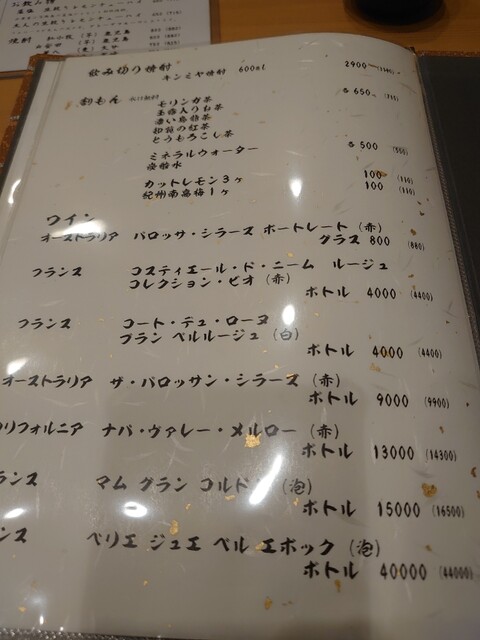 お飲み物
焼酎
飲み切り焼酎
キンミヤ焼酎 600ml 2900
割もん 各650
モリンガ茶
玉露入りお茶
濃い烏龍茶
和箱の紅茶
とうもろこし茶
ミネラルウォーター 各500 (550)
炭酸水
カットレモン3ヶ 100 (110)
紀州南高梅1ヶ 100 (110)
ワイン
オーストラリア バロッサ・シラーズ ポートレート (赤)
グラス 800 (880)
フランス コスティエール・ド・ニーム ルージュ
コレクション・ビオ (赤)
ボトル 4000 (4400)
フランス コート・デュ・ローヌ
ブラン ペルルージュ (白)
ボトル 4000 (4400)
オーストラリア ザ・バロッサン・シラーズ (赤)
ボトル 9000 (9900)
リフォルニア ナパ・ヴァレー・メルロー (赤)
ボトル 13000 (14300)
ランス マム グラン コルドン (泡)
ボトル 15000 (16500)
ンス ペリエ ジュエ ベル エポック (泡)
ボトル 40000 (44000)